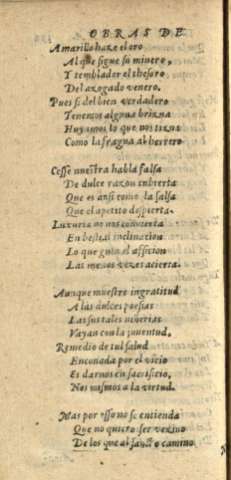 OBRAS DE
Amarillo haze el oro
Al que sigue su minero,
Y temblador el thesoro
Del azogado venero.
Pues si del bien verdadero
Tenemos alguna brizna
Huyamos lo que nos tizna
Como la fragua al herrero
Cesse nuestra habla falsa
De dulce razon cubierta
Que es ansi como la salsa
Que el apetito despierta.
Luxuria no nos convierta
En bestial inclinacion
Lo que guia el afficion
Las menos vezes acierta.
Aunque muestre ingratitud
A las dulces poesias
Las sus tales niñerias
Vayan con la juventud.
Remedio de tal salud
Enconada por el vicio
Es darnos en sacrificio,
Nos mismos a la virtud.
Mas por esso no se entienda
Que no quiero ser vezino
De los que al sancto camino